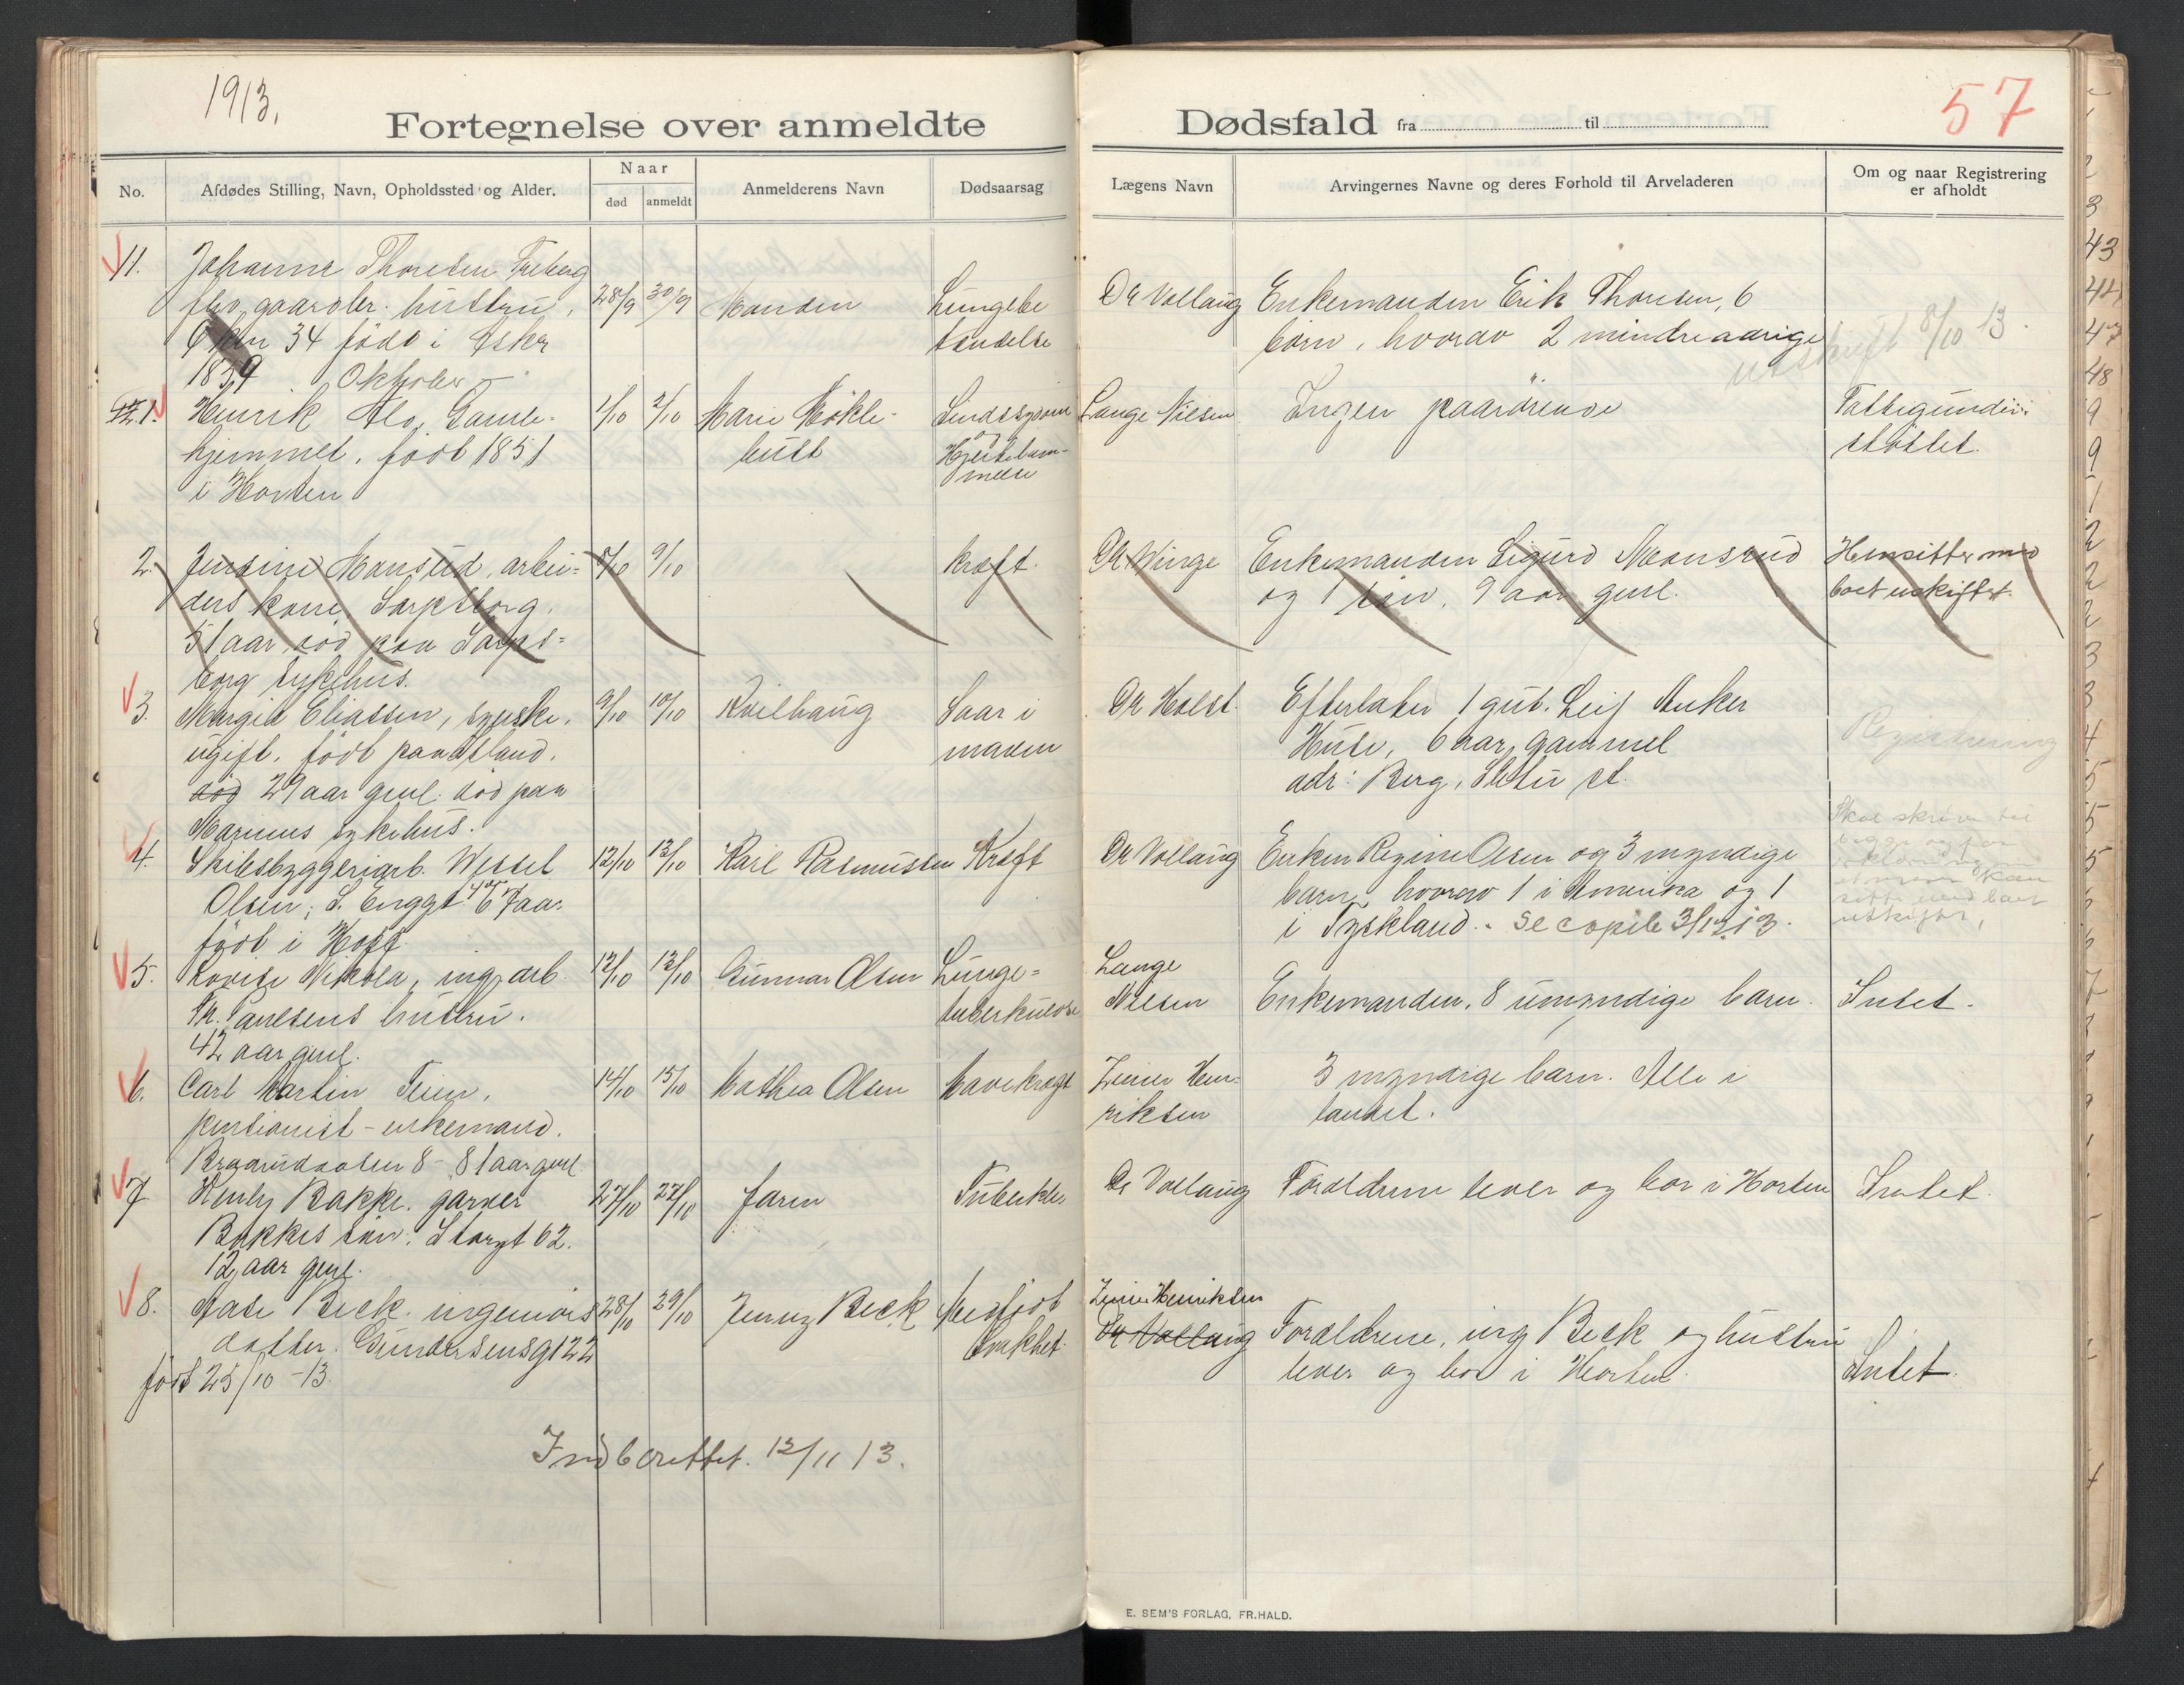 1913.
57
Fortegnelse over anmeldte Dødsfald fra til
No.
Afdødes Stilling, Navn, Opholdssted og Alder.
Naar
død
anmeldt
Anmelderens Navn
Dødsaarsag
Lægens Navn
Arvingernes Navne og deres Forhold til Arveladeren
Om og naar Registrering
er afholdt
11.
Johanne Thoresen
fhv. gaardbr. hustru,
34 født i
Oktober
28/9 30/9 Manden
Lungebe
tendelse
Dr Vollaug
Enkemanden Erik Thoresen, 6
børn, hvorav 2 mindreaarige
utskrift 8/10 13.
1.
Henrik Alo, Gamle-
hjemmet, født 1851
i Horten
1/10 2/10
Marie Møkle-
bust
Sindssygdom
og
Lange Nilsen
Ingen paarørende
Fattigunder-
støttet.
2.
Jensine Mansrud, arbei-
ders kone, Sarpsborg.
51 aar, død paa Sarps-
borg sykehus.
8/10 9/10
Kræft.
Dr Winge
Enkemanden Sigurd Monsrud
og 1 søn, 9 aar gml.
Hensitter med
boet uskiftet.
3.
Margit Eliassen, syerske,
ugift, født paa Østland.
død 29 aar gml. død paa
Marinens sykehus.
9/10 10/10
Kvilhaug
Saar i
maven
Dr Holst.
Efterlater 1 gut. Leif Anker
Huse, 6 aar gammel
adr: Berg, st.
Registrering
4.
Skibsbyggeriarb. Wessel
Olsen, S. Enggt. 47 67 aar
født i Hoff.
12/10 13/10
Karl Rasmussen
Kræft
Dr Vollaug
Enken Regine Olsen og 3 myndige
barn, hvorav 1 i Amerika og 1
i Tyskland. se copib 3/12 13.
Skal skrive til
5.
Lovise Nikola, ing. arb.
Th. Paulsens hustru.
42 aar gml.
12/10 13/10
Gunnar Olsen
Lunge-
tuberkulose
Lange
Nilsen
Enkemanden, 8 umyndige barn.
Intet.
6.
Carl Martin Teien,
pensionist - enkemand.
Braarudgaten 8 - 81 aar gml
14/10 15/10
Mathea Olsen
Mavekræft
Zeiner Hen-
riksen
3 myndige barn. Alle i
landet.
7
Henly Bakke, garver
Bakkes søn, Storgt 62.
12 aar gml.
27/10 27/10
faren
Tuberkler
Dr Vollaug
Forældrene lever og bor i Horten
Intet.
8.
Aase Beck, ingeniørs
datter. Gundersensgt 22
født 25/10 -13.
28/10 29/10
Jenny Beck
Medfødt
svakhet
Zeiner Henriksen
Dr Vollaug
Forældrene, ing Beck og hustru
lever og bor i Horten.
Intet.
Indberettet. 12/11 13.
E. SEM'S FORLAG, FR.HALD.